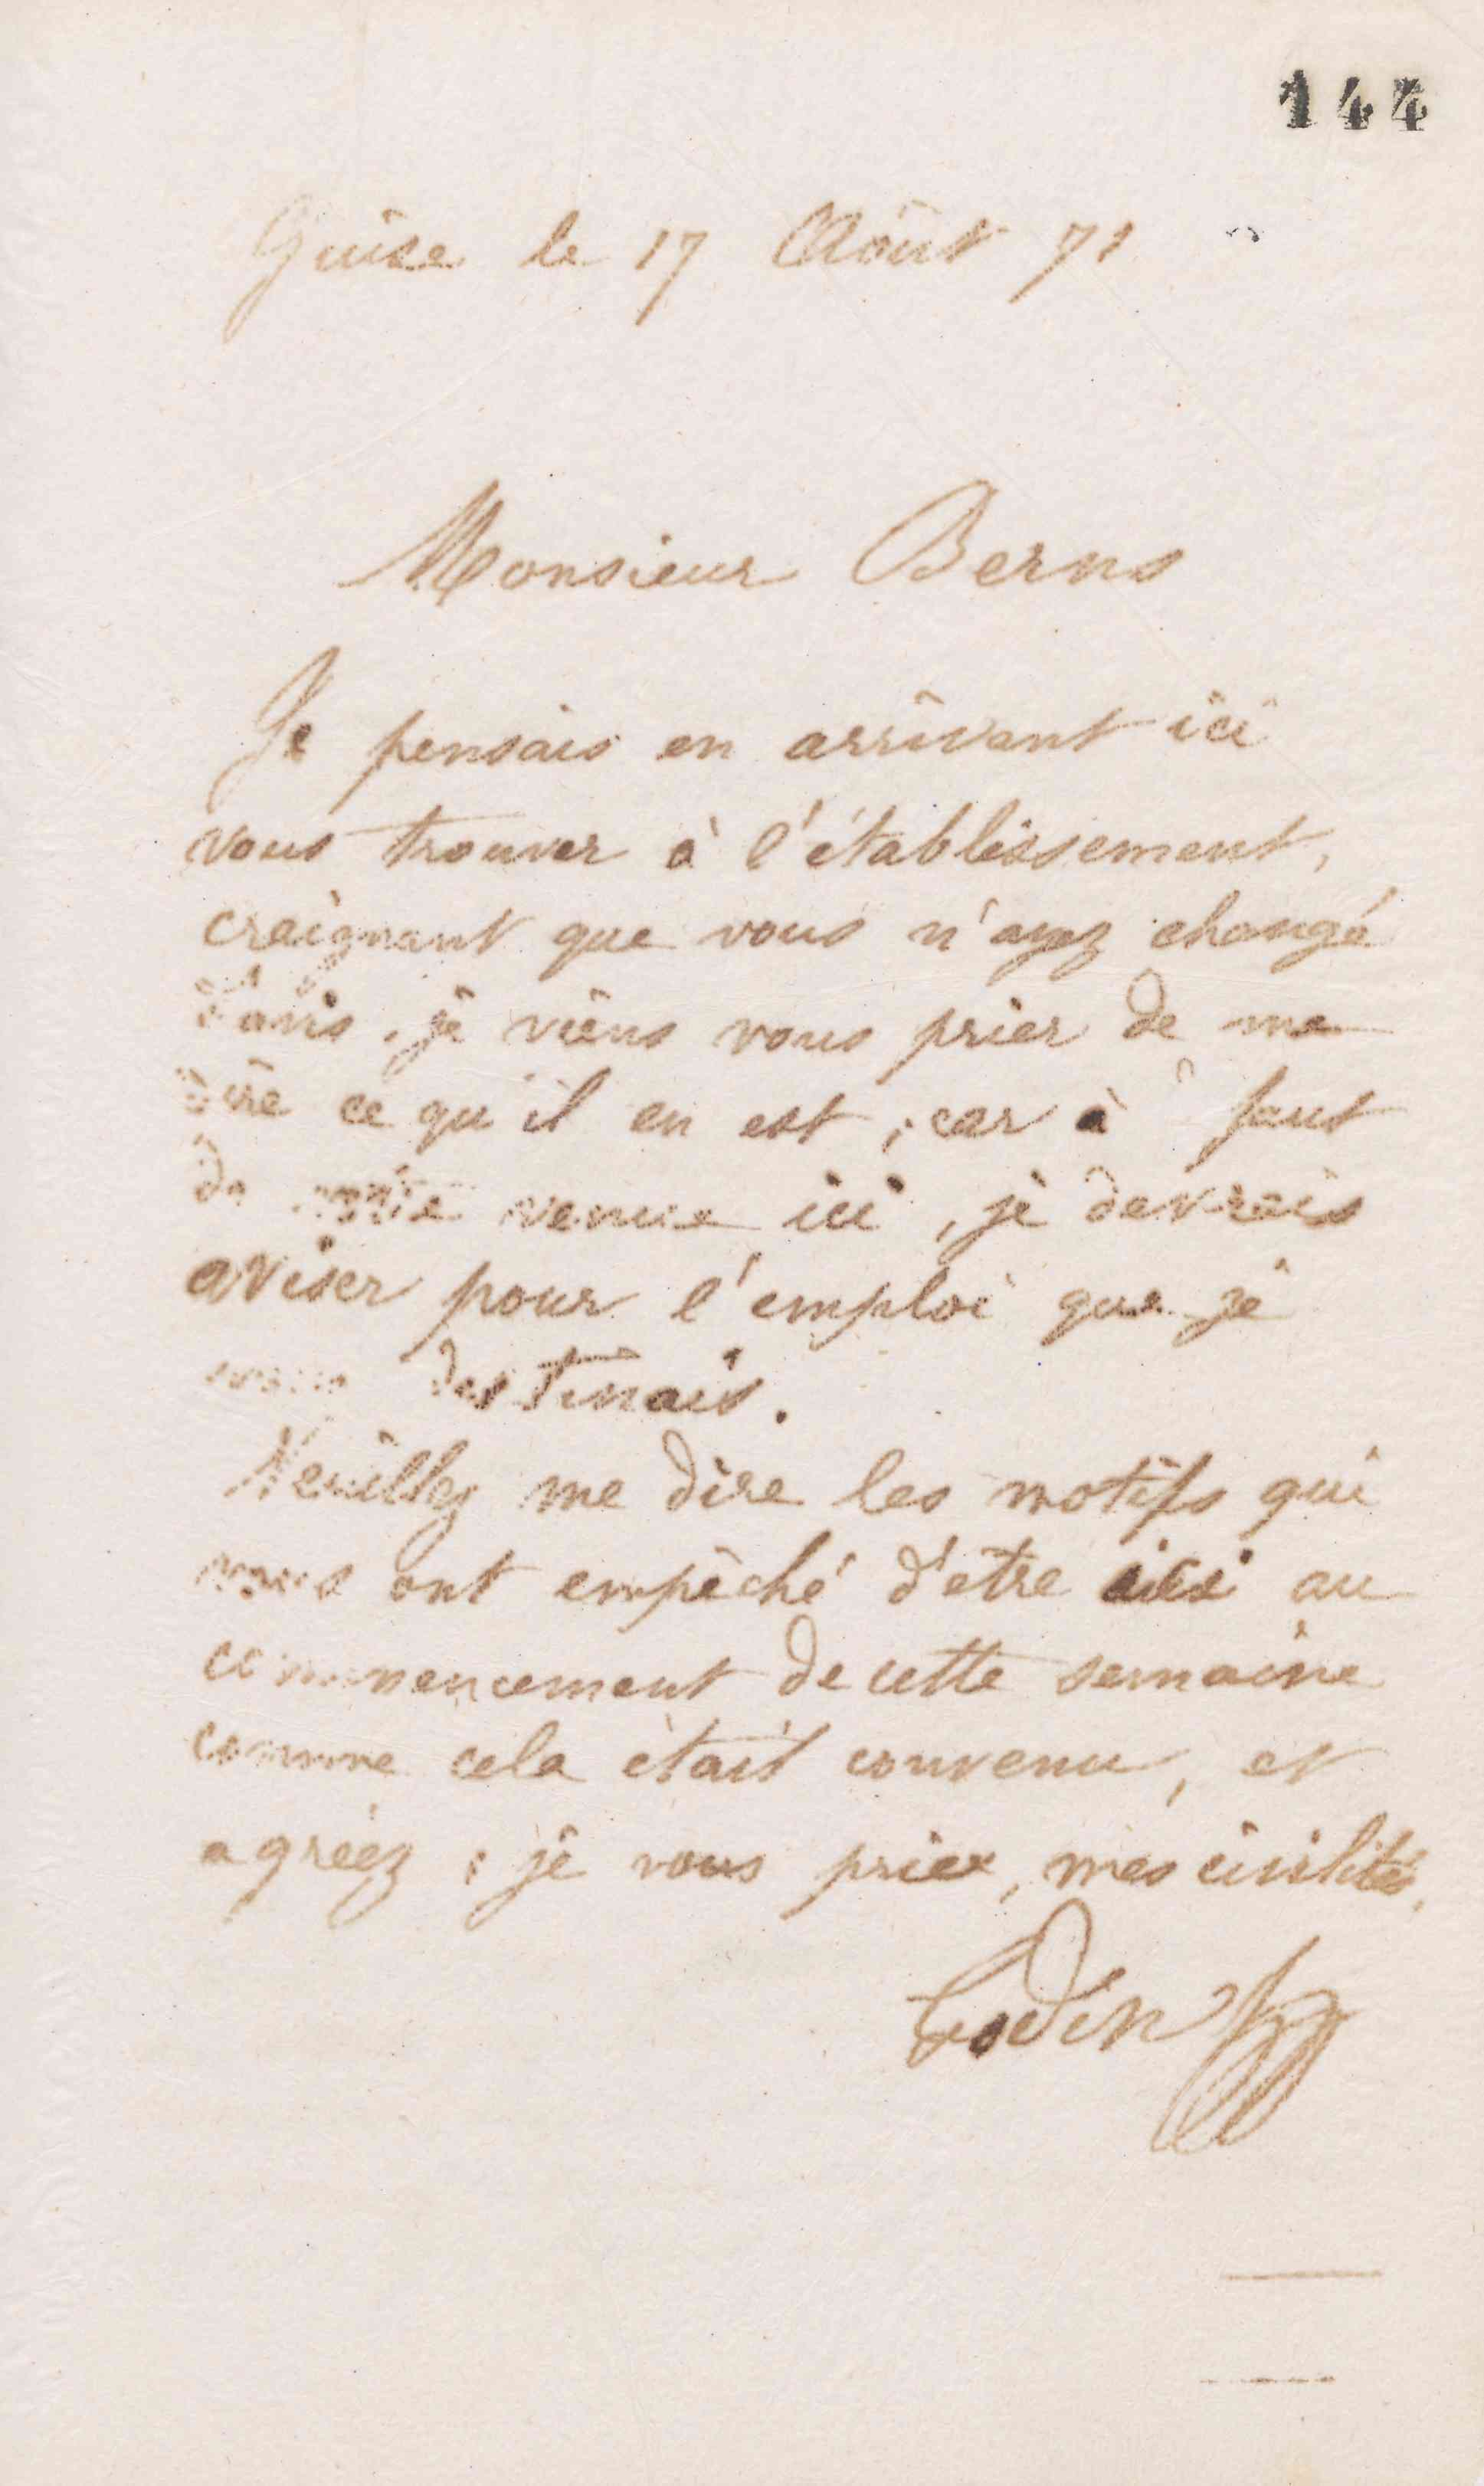 144
Guise le 17 Août 71
Monsieur Berns
Je pensais en arrivant ici
vous trouver à l'établissement,
craignant que vous n'ayez changé
d'avis, je viens vous prier de me
dire ce qu'il en est, car à faut
de votre venue ici, je devrais
aviser pour l'emploi que je
vous destinais.
Veuillez me dire les motifs qui
vous ont empêché d'être ici au
commencement de cette semaine
comme cela était convenu, et
agréez, je vous prie, mes civilités.
Godin